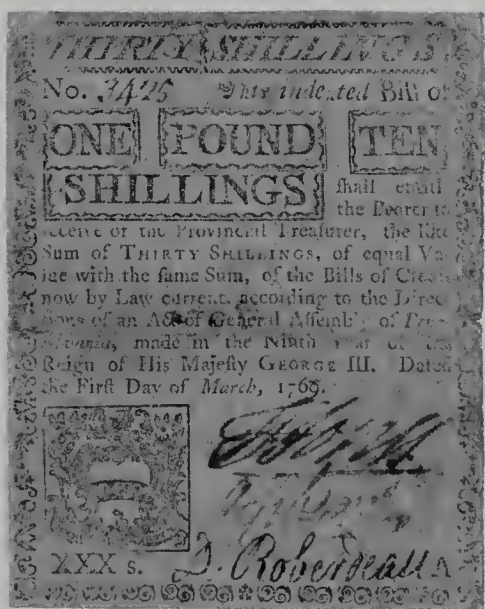 THIRTY SHILLINGS
No. 3425 This indented Bill of
ONE POUND TEN
SHILLINGS ſhall entitl
the Bearer to
receive of the Provincial Treaſurer, the like
Sum of THIRTY SHILLINGS, of equal Va-
lue with the ſame Sum, of the Bills of Credit
now by Law current, according to the Direc-
tions of an Act of General Aſſembly of Penn-
ſylvania, made in the Ninth Year of the
Reign of His Majeſty GEORGE III. Dated
the Firſt Day of March, 1769.
XXX s. D. Roberdeau